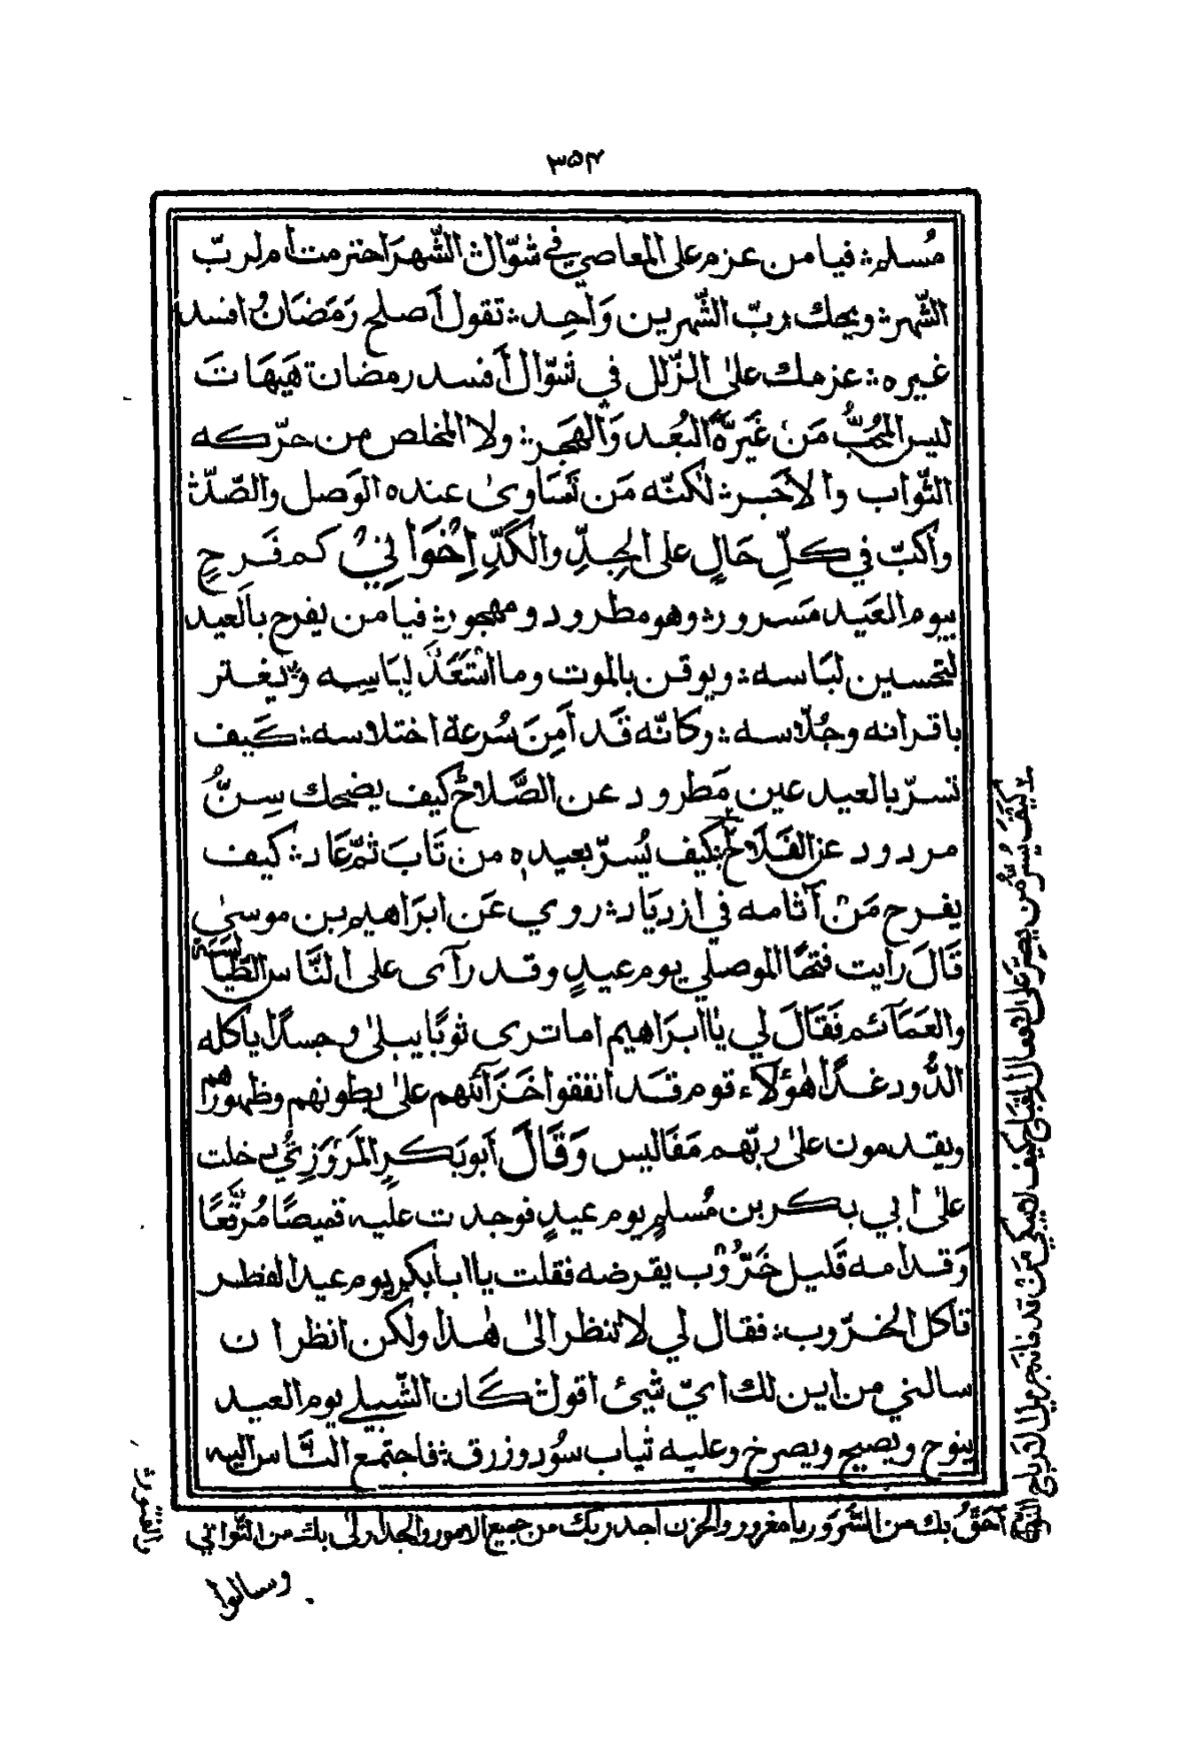 ٣٥٤
مُسلم؛ فيا من عزم على المعاصي في شوّال؛ الشّهرَ احترمت ام لربّ
الشّهر؛ ويحك ربّ الشّهرين وَاحِد؛ تقول أصلح رَمَضَانُ افسد
غيره؛ عزمك على الزّلل في شوّال أفسد رمضان هَيهَاتَ
ليس المحبُّ مَن غَيَّرَهُ البُعد وَالهَجر؛ ولا المخلص من حرّكه
الثّواب والأجر؛ لكنّه مَن تَسَاوى عنده الوَصل والصّدّ؛
واكبّ في كلّ حَالٍ على الجِدِّ والكَدِّ إِخْوَانِيْ كم فَرِحٍ
بيوم العَيد مَسرور؛ وهو مطرود ومهجور؛ فيا من يفرح بالعيد
لتحسين لبَاسه؛ ويوقن بالموت وما استَعَدَّ لِبَاسِه ويغتر
باقرانه وجُلّاسه؛ وكانّه قَد أَمِنَ سُرعة اختلاسه؛ كَيف
تسرّ بالعيد عين مَطرود عن الصَّلاحْ كيف يضحك سِنُّ
مردود عن الفَلَاحْ؛ كيف يُسرّ بعيده من تَابَ ثمّ عَاد؛ كيف
يفرح مَنْ آثامه في ازديَاد؛ روي عَن ابرَاهيم بن موسىٰ
قَالَ رأيت فتحًا الموصلي يوم عيدٍ وقد رآى على النَّاس الطّيالسَة
والعَمَآئم فَقَالَ لي يا ابرَاهيم اما ترى ثوبًا يبلىٰ وجسدًا ياكله
الدُّود غدًا هٰؤلَاء قوم قَد انفقوا خَزَآئنهم علىٰ بطونهم وظهورهم
ويقدمون علىٰ ربّهم مَفَاليس وَقَالَ أبو بَكرٍ المَرْوَزِيُّ دخلت
علىٰ ابي بكر بن مُسلمٍ يوم عيدٍ فوجدت عليه قميصًا مُرقَّعًا
وَقدامه قَليل خَرُّوب يقرضه فقلت يا ابا بكر يوم عيد الفطر
تاكل الخرّوب؛ فقال لي لا تنظر الىٰ هٰذا ولكن انظر ان
سالني من اين لك ايّ شيئ اقول؛ كَان الشّبلي يوم العيد
ينوح ويصيح ويصرخ وعليه ثياب سُود وزرق؛ فاجتمع النَّاس اليه
كَيفَ يُسرُّ من يصرّ على الافعال القباح كيف لا يبكي مَنْ قد فاته جزيل الارباح النوح
أحَقُّ بك من السّرَور يا مغرور والحزن اجدر بك من جميع الامور والجد اولىٰ بك من التَّواني
والفتور؛
وسالوا